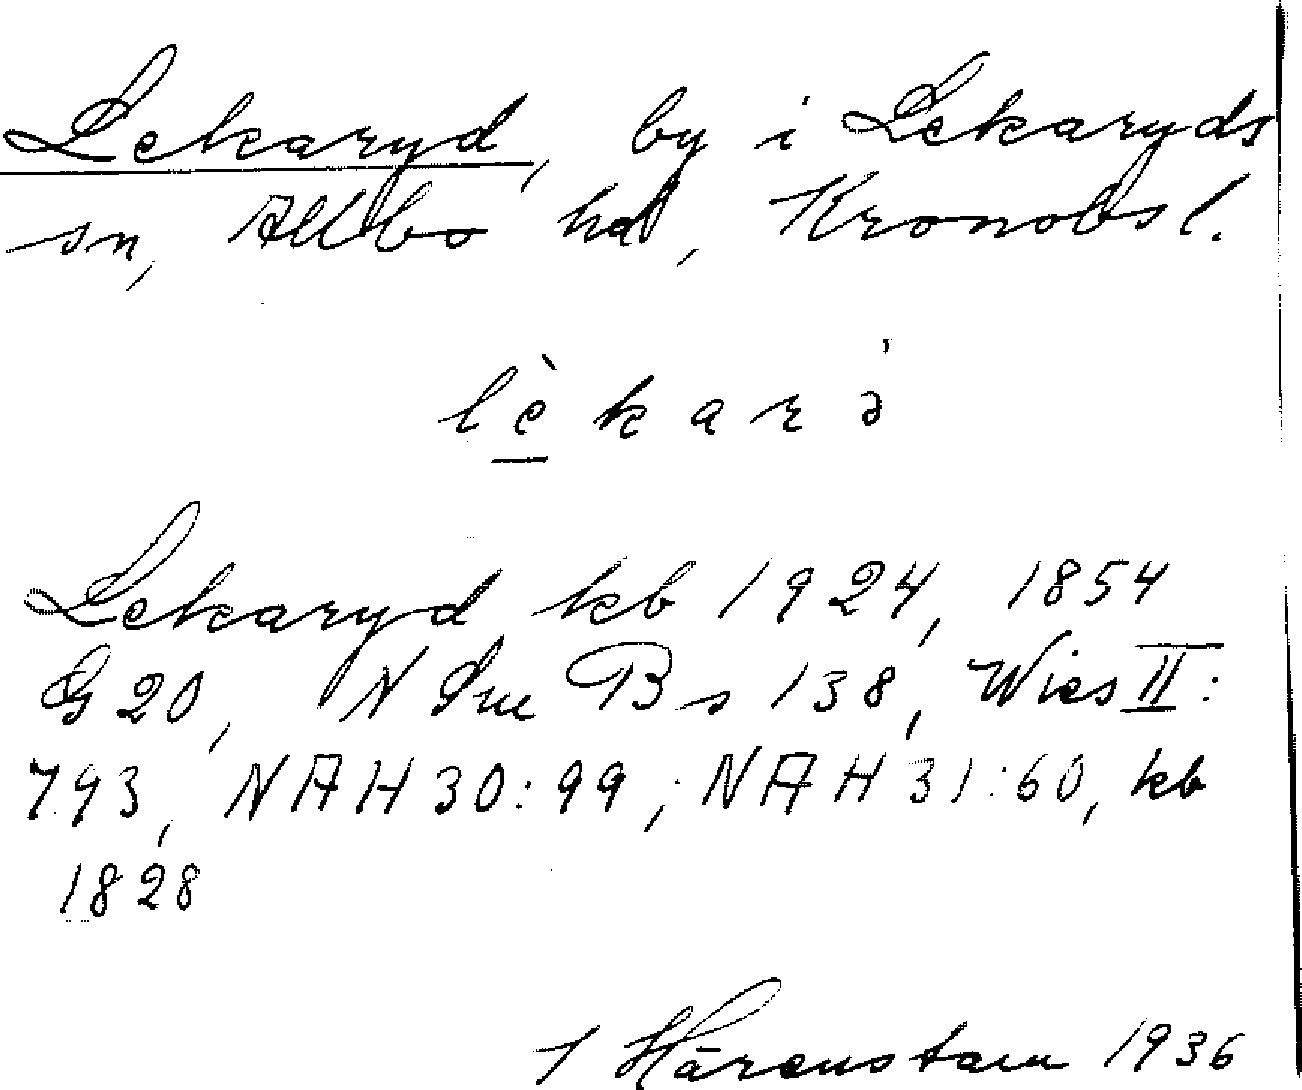 Lekaryd, by i Lekaryds
sn, Allbo hd, Kronobs l.
lèkarə̀
Lekaryd kb 1924, 1854
G 20, N Sm B s 138, Wies II:
793, NAH 30:99; NAH 31:60, kb
1828
I Härenstam 1936